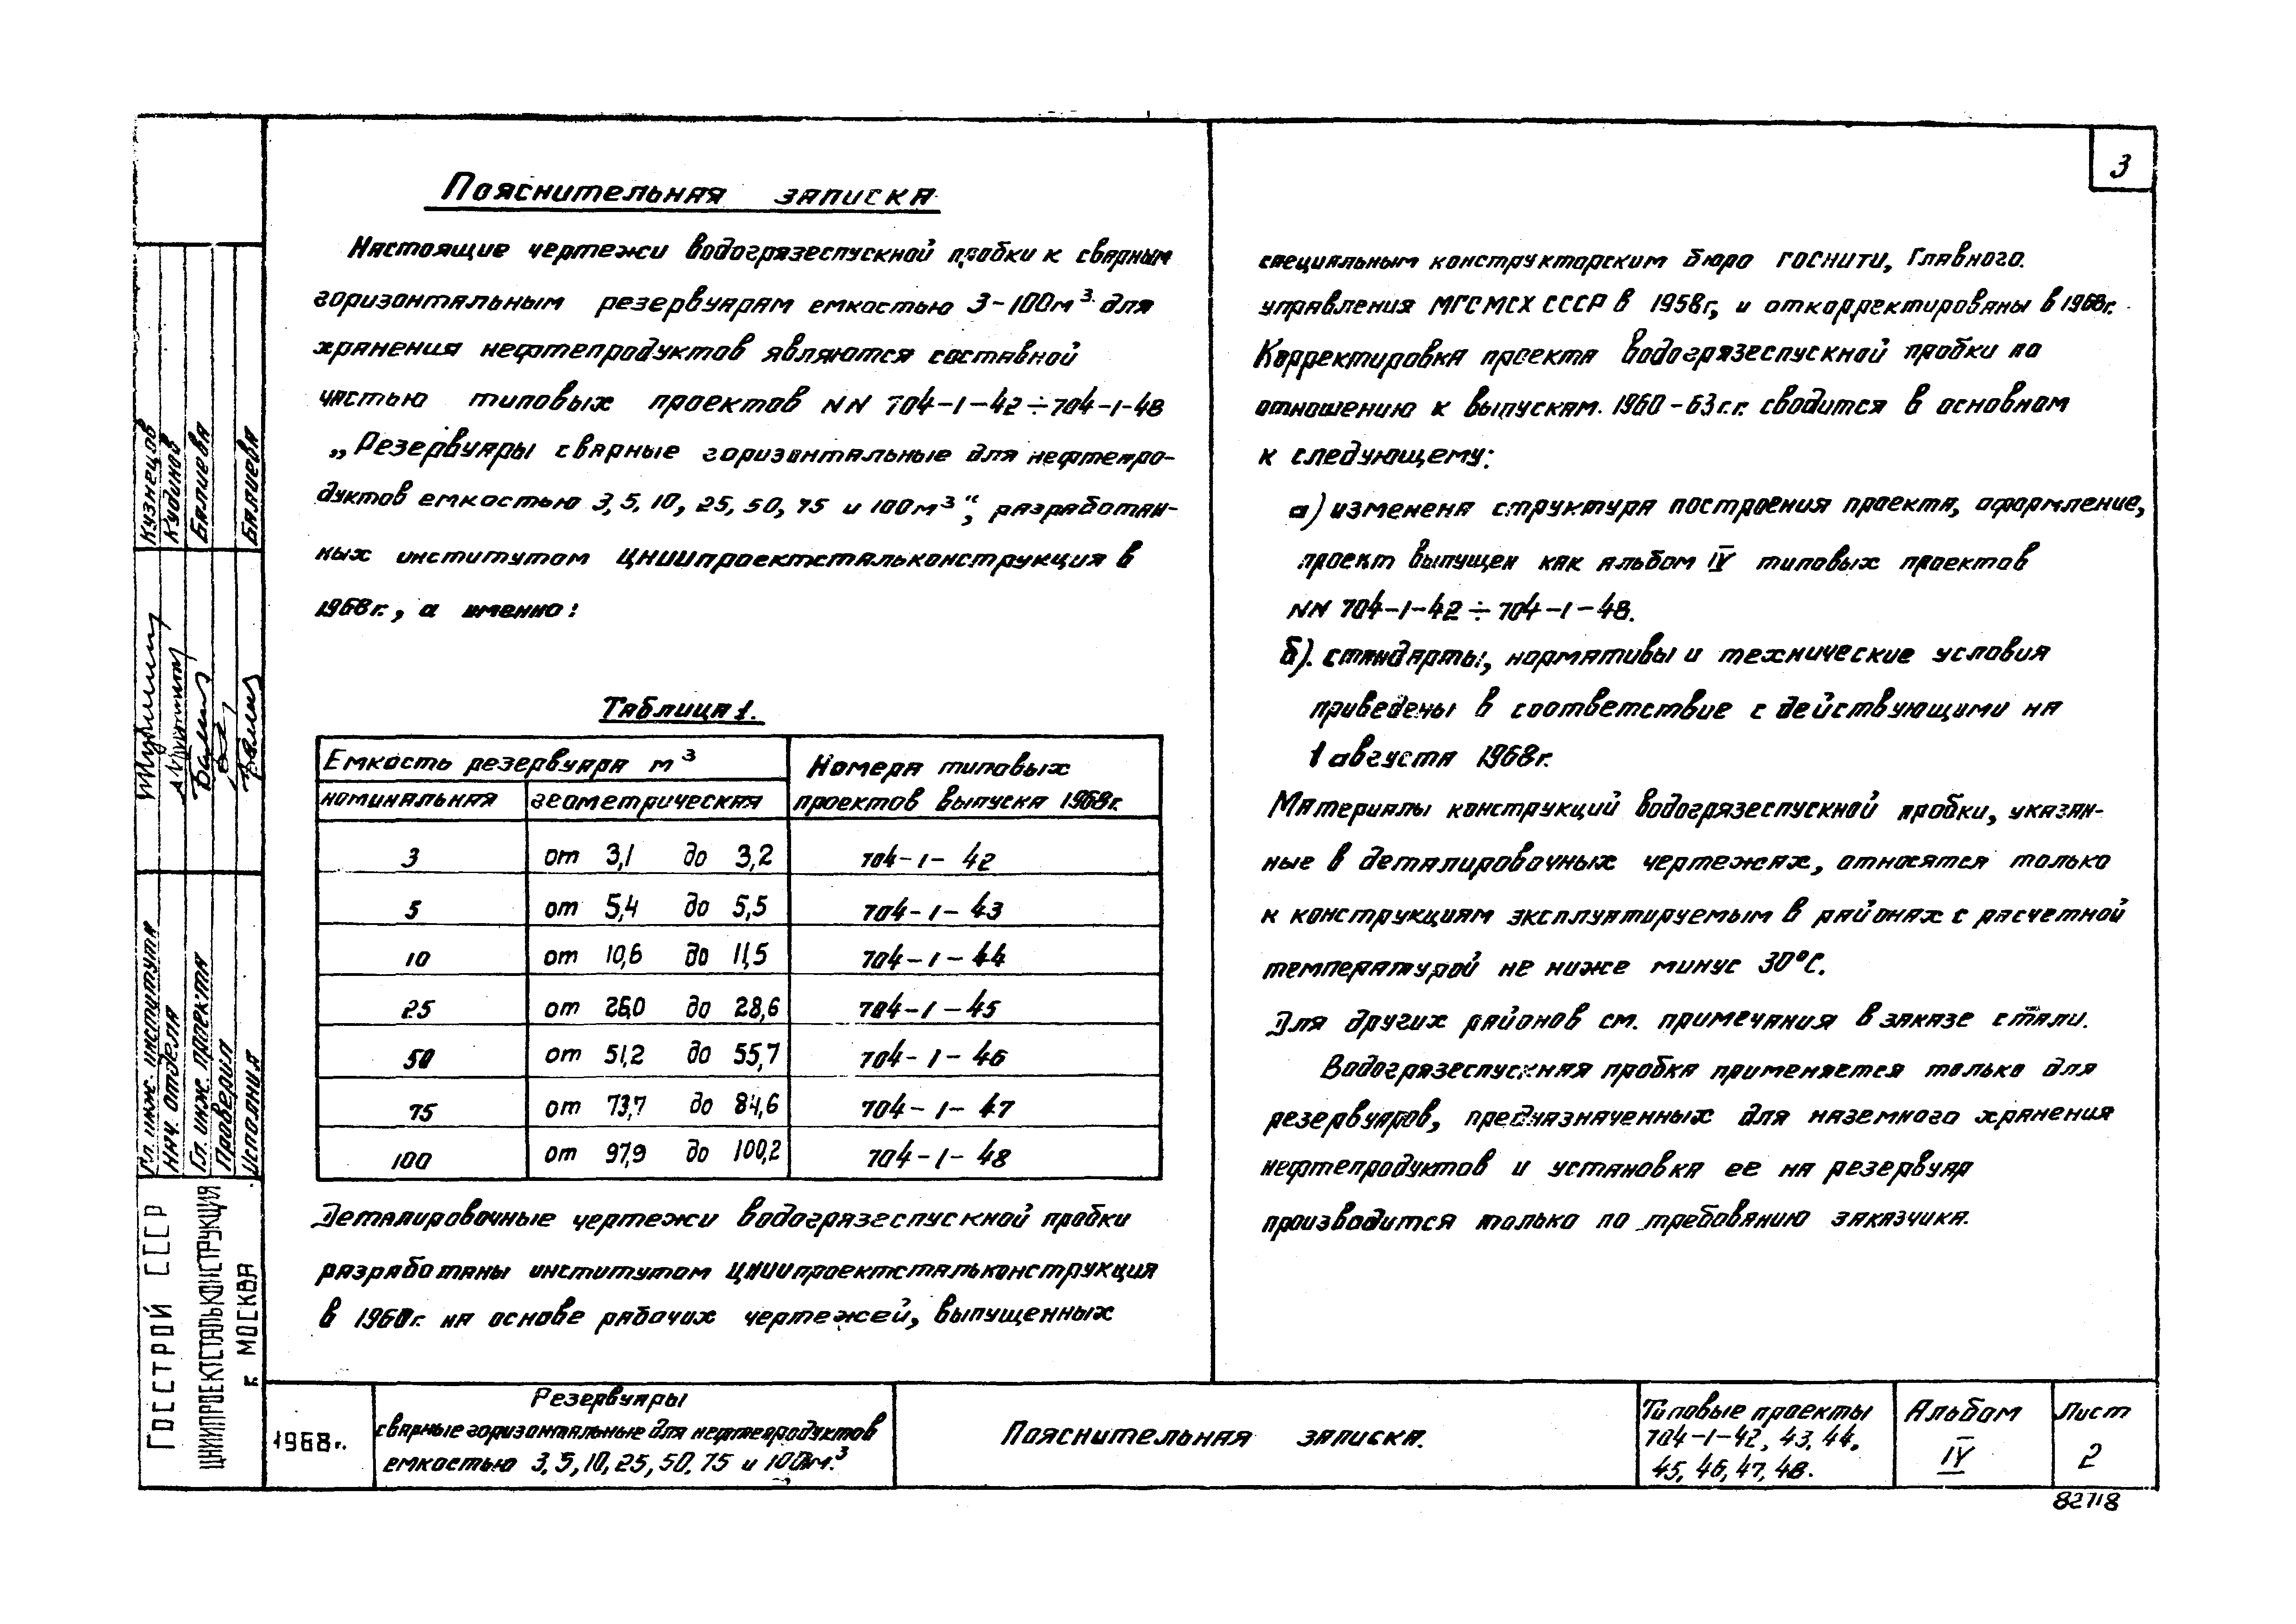 3
Пояснительная записка
Настоящие чертежи водогрязеспускной пробки к сварным
горизонтальным резервуарам емкостью 3-100м³ для
хранения нефтепродуктов являются составной
частью типовых проектов NN 704-1-42÷704-1-48
„Резервуары сварные горизонтальные для нефтепро-
дуктов емкостью 3, 5, 10, 25, 50, 75 и 100м³“, разработан-
ных институтом ЦНИИпроектстальконструкция в
1968г., а именно:
Таблица 1.
Емкость резервуара м³
Номера типовых
проектов выпуска 1968г.
номинальная геометрическая
3 от 3,1 до 3,2 704-1-42
5 от 5,4 до 5,5 704-1-43
10 от 10,6 до 11,5 704-1-44
25 от 26,0 до 28,6 704-1-45
50 от 51,2 до 55,7 704-1-46
75 от 73,7 до 84,6 704-1-47
100 от 97,9 до 100,2 704-1-48
Деталировочные чертежи водогрязеспускной пробки
разработаны институтом ЦНИИпроектстальконструкция
в 1960г. на основе рабочих чертежей, выпущенных
специальным конструкторским бюро ГОСНИТИ, Главного.
управления МГСМСХ СССР в 1958г, и откорректированы в 1968г.
Корректировка проекта водогрязеспускной пробки по
отношению к выпускам. 1960-63г.г. сводится в основном
к следующему:
а) изменена структура построения проекта, оформление,
проект выпущен как альбом IV типовых проектов
NN 704-1-42÷704-1-48.
б). стандарты, нормативы и технические условия
приведены в соответствие с действующими на
1 августа 1968г.
Материалы конструкций водогрязеспускной пробки, указан-
ные в деталировочных чертежах, относятся только
к конструкциям эксплуатируемым в районах с расчетной
температурой не ниже минус 30°С.
Для других районов см. примечания в заказе стали.
Водогрязеспускная пробка применяется только для
резервуаров, предназначенных для наземного хранения
нефтепродуктов и установка ее на резервуар
производится только по требованию заказчика.
Гл. инж. института Кузнецов
Нач. отдела Кудинов
Гл. инж. проекта Балиева
Проверил
Исполнил Балиева
ГОССТРОЙ СССР
ЦНИИПРОЕКТСТАЛЬКОНСТРУКЦИЯ
г. МОСКВА
1968г.
Резервуары
сварные горизонтальные для нефтепродуктов
емкостью 3, 5, 10, 25, 50, 75 и 100м.³
Пояснительная записка.
Типовые проекты
704-1-42, 43, 44,
45, 46, 47, 48.
Альбом
IV
Лист
2
82718